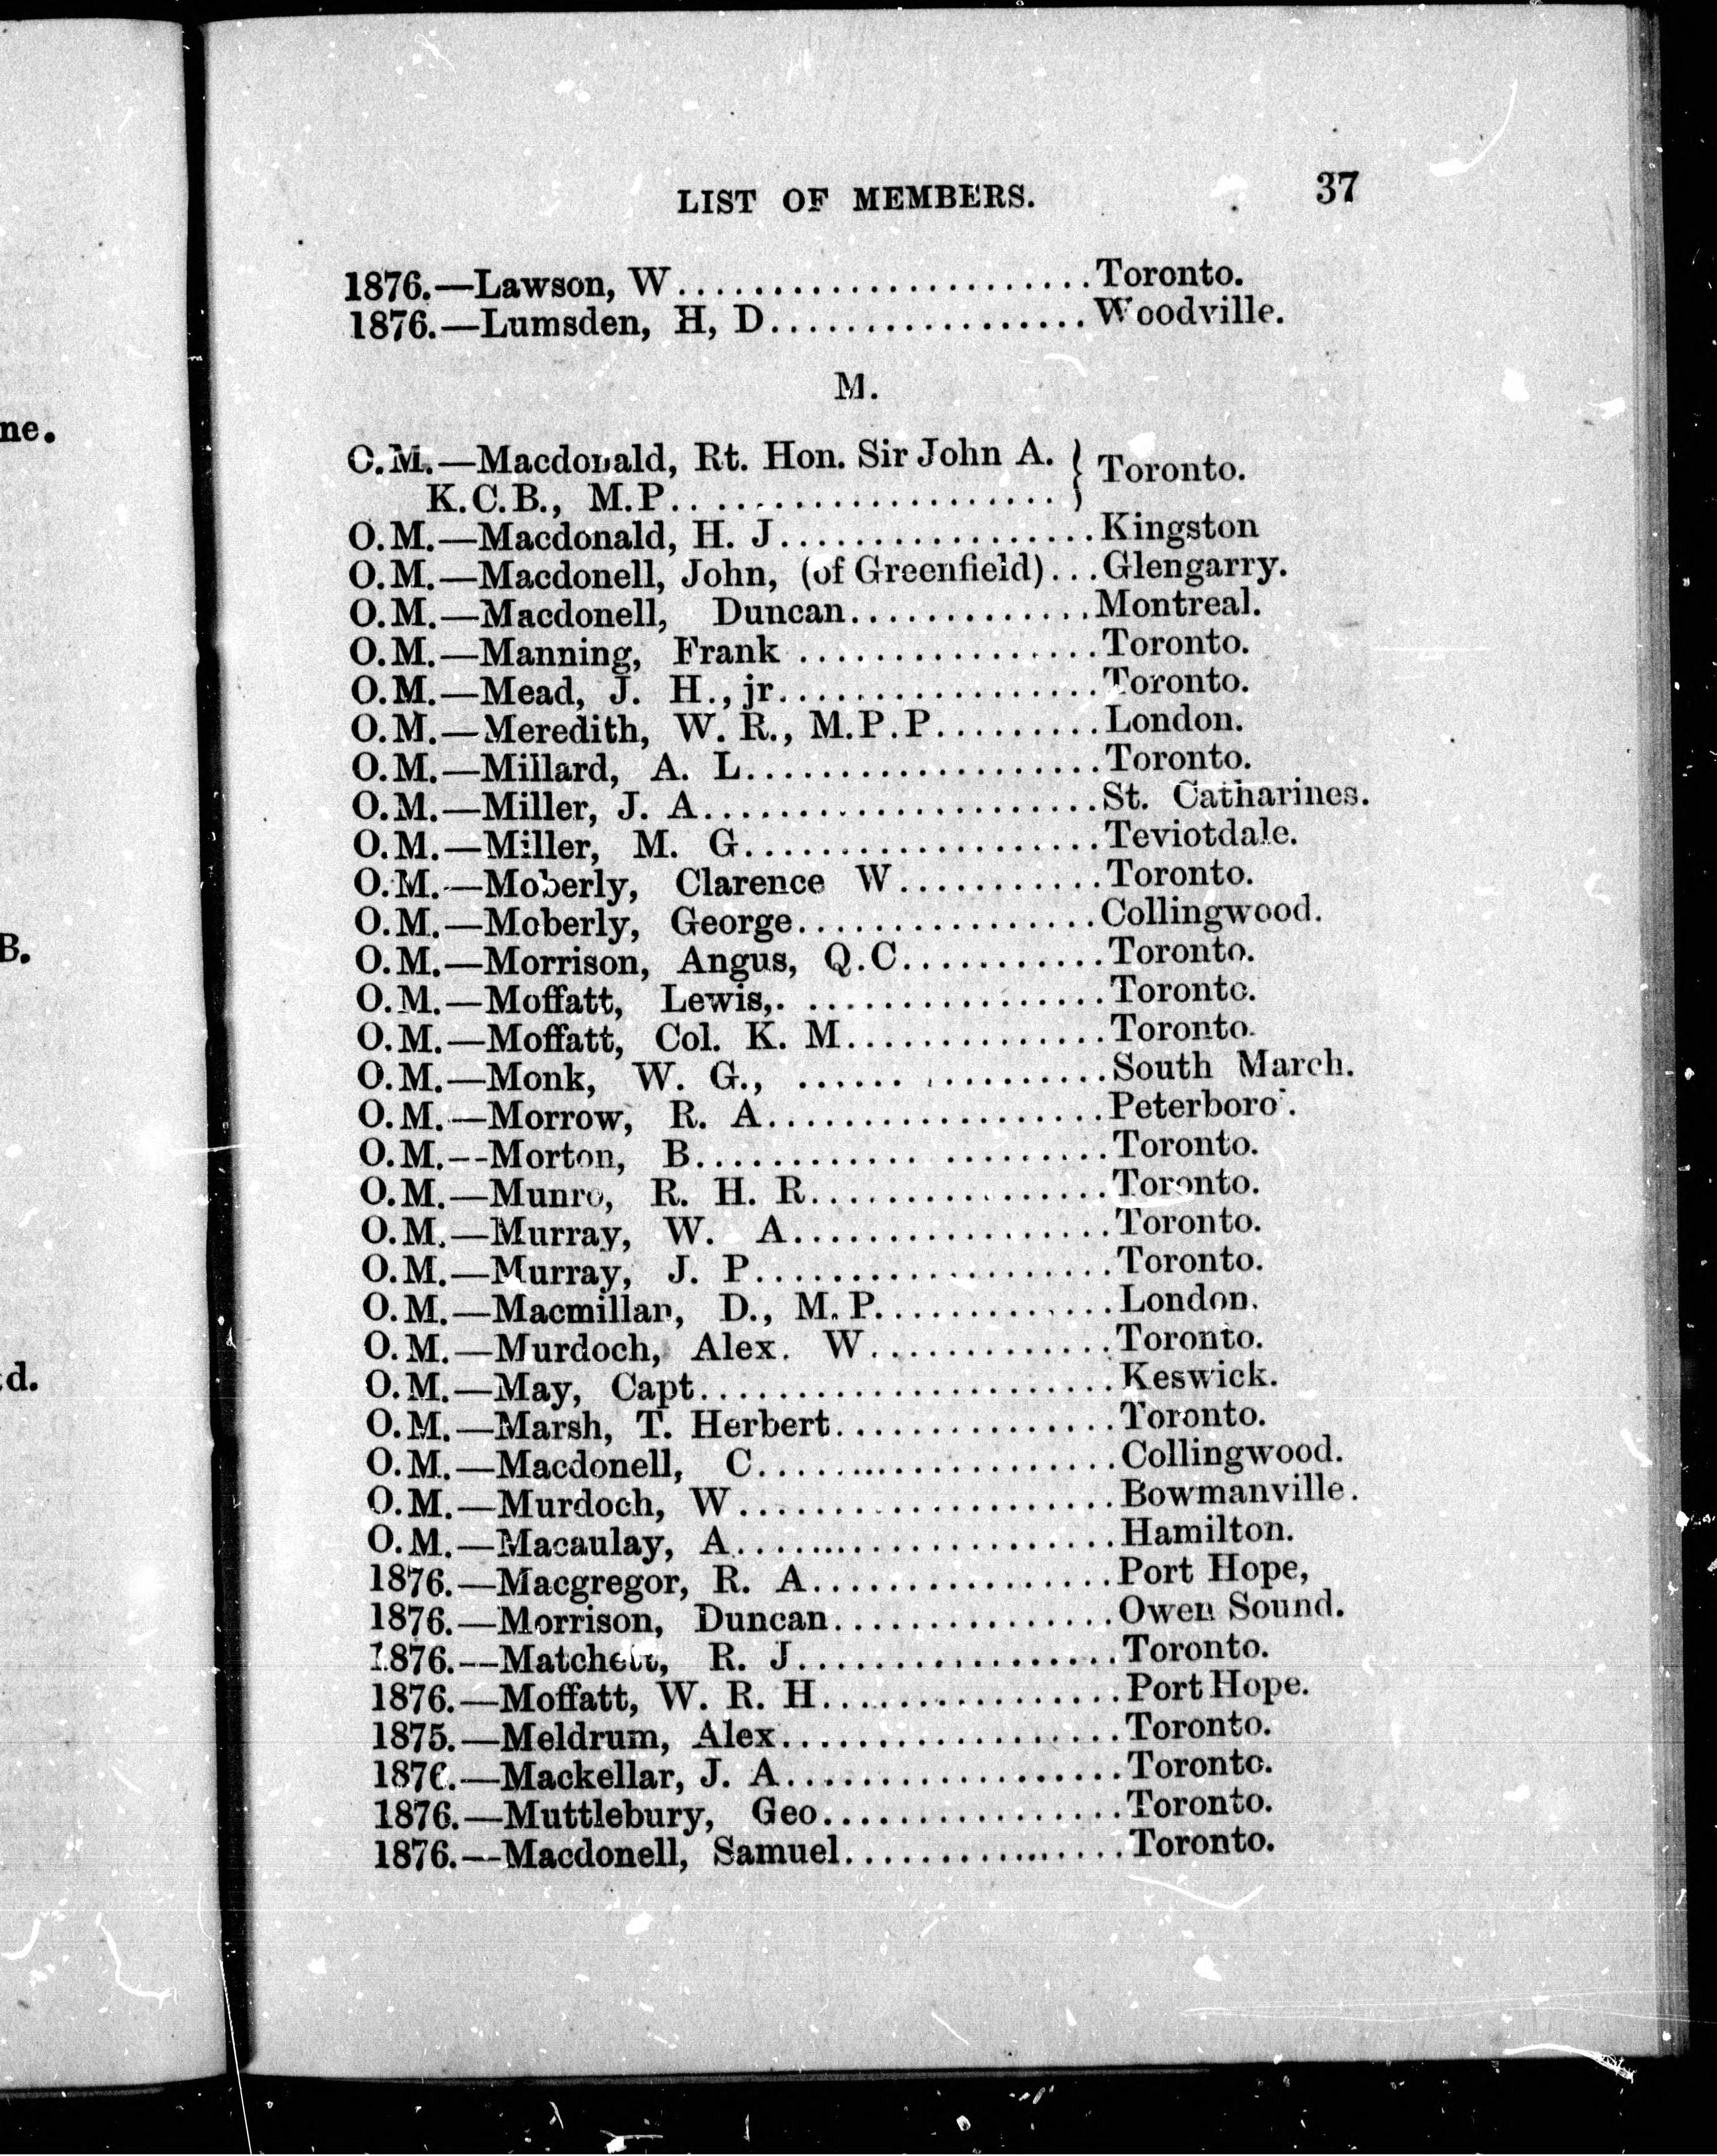 LIST OF MEMBERS. 37
1876.—Lawson, W........................Toronto.
1876.—Lumsden, H, D.................Woodville.
M.
O.M.—Macdonald, Rt. Hon. Sir John A. } Toronto.
K.C.B., M.P....................
O.M.—Macdonald, H. J.................Kingston
O.M.—Macdonell, John, (of Greenfield)...Glengarry.
O.M.—Macdonell, Duncan.............Montreal.
O.M.—Manning, Frank ................Toronto.
O.M.—Mead, J. H., jr.................Toronto.
O.M.—Meredith, W. R., M.P.P.........London.
O.M.—Millard, A. L...................Toronto.
O.M.—Miller, J. A.....................St. Catharines.
O.M.—Miller, M. G...................Teviotdale.
O.M.—Moberly, Clarence W...........Toronto.
O.M.—Moberly, George................Collingwood.
O.M.—Morrison, Angus, Q.C...........Toronto.
O.M.—Moffatt, Lewis,. ................Toronto.
O.M.—Moffatt, Col. K. M..............Toronto.
O.M.—Monk, W. G., ................South March.
O.M.—Morrow, R. A..................Peterboro'.
O.M.--Morton, B.....................Toronto.
O.M.—Munro, R. H. R................Toronto.
O.M.—Murray, W. A.................Toronto.
O.M.—Murray, J. P...................Toronto.
O.M.—Macmillan, D., M.P.............London.
O.M.—Murdoch, Alex. W.............Toronto.
O.M.—May, Capt......................Keswick.
O.M.—Marsh, T. Herbert...............Toronto.
O.M.—Macdonell, C...................Collingwood.
O.M.—Murdoch, W....................Bowmanville.
O.M.—Macaulay, A....................Hamilton.
1876.—Macgregor, R. A................Port Hope,
1876.—Morrison, Duncan...............Owen Sound.
1876.--Matchett, R. J.................Toronto.
1876.—Moffatt, W. R. H................Port Hope.
1875.—Meldrum, Alex..................Toronto.
1876.—Mackellar, J. A..................Toronto.
1876.—Muttlebury, Geo................Toronto.
1876.--Macdonell, Samuel...............Toronto.
ne.
B.
d.